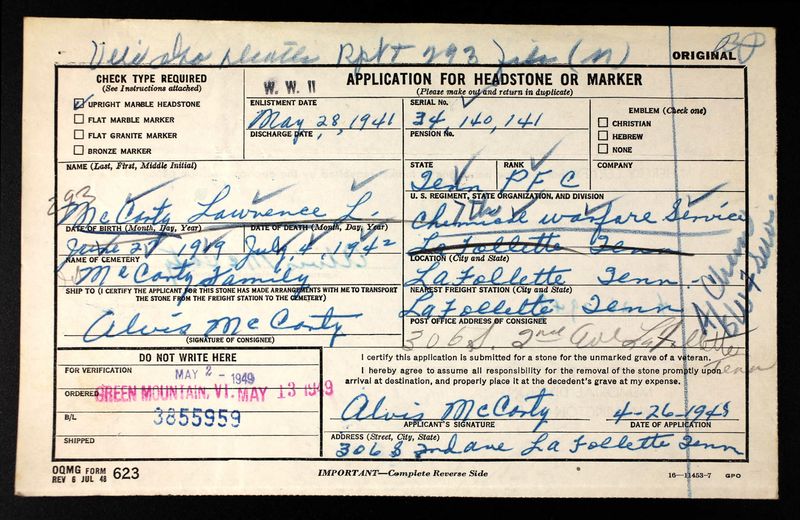 293
ORIGINAL
CHECK TYPE REQUIRED
(See Instructions attached)
UPRIGHT MARBLE HEADSTONE
FLAT MARBLE MARKER
FLAT GRANITE MARKER
BRONZE MARKER
W. W. II
APPLICATION FOR HEADSTONE OR MARKER
(Please make out and return in duplicate)
ENLISTMENT DATE
May 28, 1941
DISCHARGE DATE
SERIAL No.
34,140,141
PENSION No.
EMBLEM (Check one)
CHRISTIAN
HEBREW
NONE
NAME (Last, First, Middle Initial)
293
McCarty Lawrence L.
STATE
Tenn
RANK
PFC
COMPANY
U. S. REGIMENT, STATE ORGANIZATION, AND DIVISION
Chemicale warfare Service
DATE OF BIRTH (Month, Day, Year)
DATE OF DEATH (Month, Day, Year)
June 27, 1919 July, 4, 1942
La Follette Tenn
NAME OF CEMETERY
McCarty Family
LOCATION (City and State)
La Follette Tenn.
SHIP TO (I CERTIFY THE APPLICANT FOR THIS STONE HAS MADE ARRANGEMENTS WITH ME TO TRANSPORT
THE STONE FROM THE FREIGHT STATION TO THE CEMETERY)
NEAREST FREIGHT STATION (City and State)
La Follette Tenn
Alvis McCarty
(SIGNATURE OF CONSIGNEE)
POST OFFICE ADDRESS OF CONSIGNEE
306 S. 2nd Ave LaFollette
Tenn
DO NOT WRITE HERE
FOR VERIFICATION
MAY 2 - 1949
ORDERED
GREEN MOUNTAIN, VT. MAY 13 1949
B/L
3855959
SHIPPED
I certify this application is submitted for a stone for the unmarked grave of a veteran.
I hereby agree to assume all responsibility for the removal of the stone promptly upon
arrival at destination, and properly place it at the decedent's grave at my expense.
Alvis McCarty 4-26-1949
APPLICANT'S SIGNATURE
DATE OF APPLICATION
ADDRESS (Street, City, State)
306 S 2nd ave La Follette Tenn
OQMG FORM
REV 6 JUL 48
623
IMPORTANT—Complete Reverse Side
16—11453-7 GPO